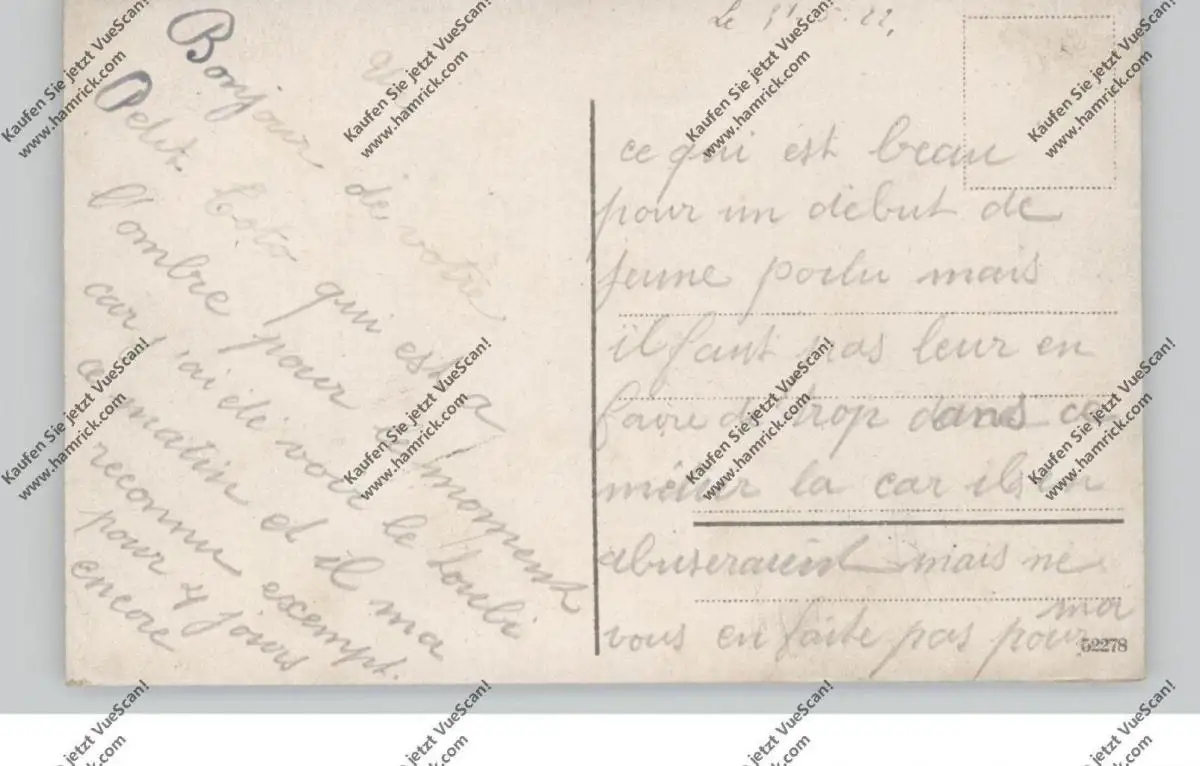 Bonjour de votre
Petit Toto qui est a
l'ombre pour ce moment
car j'ai été voir le toubi
ce matin et il ma
reconnu exempt.
pour 4 jours
encore
Le 22,
ce qui est beau
pour un debut de
jeune poilu mais
il faut pas leur en
faire de trop dans ce
métier la car ils en
abuseraient mais ne
vous en faite pas pour
moi
52278
Kaufen Sie jetzt VueScan!
www.hamrick.com